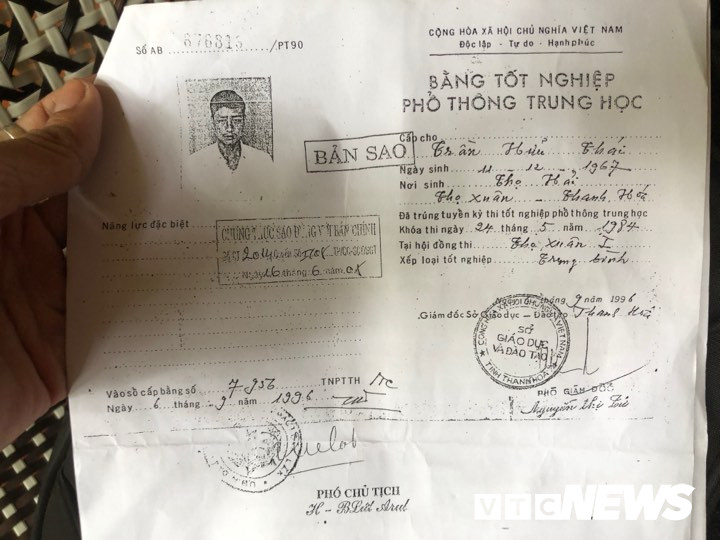 CỘNG HÒA XÃ HỘI CHỦ NGHĨA VIỆT NAM
Độc lập - Tự do - Hạnh phúc
Số AB 676313 /PT90
BẰNG TỐT NGHIỆP
PHỔ THÔNG TRUNG HỌC
BẢN SAO
Cấp cho Trần Hữu Thái
Ngày sinh 11 - 12 - 1967
Nơi sinh Thọ Hải
Thọ Xuân - Thanh Hóa
Đã trúng tuyển kỳ thi tốt nghiệp phổ thông trung học
Khóa thi ngày 24 tháng 5 năm 1984
Tại hội đồng thi Thọ Xuân I
Xếp loại tốt nghiệp Trung bình
Năng lực đặc biệt
CHỨNG THỰC SAO ĐÚNG VỚI BẢN CHÍNH
Ngày 16 tháng 6 năm
tháng 9 năm 1996
Giám đốc Sở Giáo dục - Đào tạo Thanh Hóa
CỘNG HÒA XÃ HỘI CHỦ NGHĨA VIỆT NAM
SỞ
GIÁO DỤC
VÀ ĐÀO TẠO
TỈNH THANH HÓA
PHÓ GIÁM ĐỐC
Nguyễn Thị
Vào sổ cấp bằng số 7956 TNPTTH
Ngày 6 tháng 9 năm 1996
PHÓ CHỦ TỊCH
H - BLứt Arul
VTC NEWS